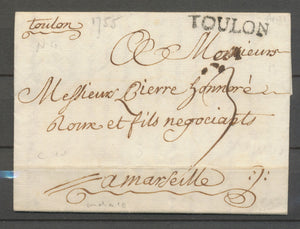 toulon
1755
TOULON
Monsieurs
Messieurs Pierre honnoré
Roux et fils negociants
a marseille